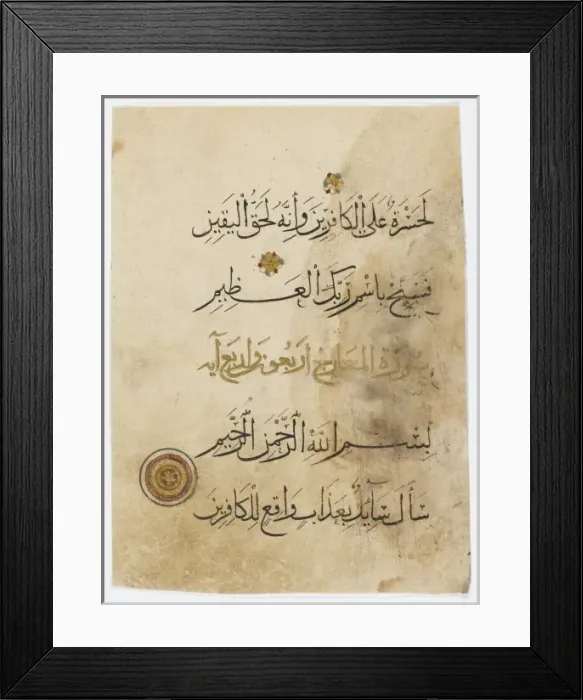 لَحَسْرَةٌ عَلَى الْكَافِرِينَ وَأِنَّهُ لَحَقُّ الْيَقِينِ
فَسَبِّحْ بِاسْمِ رَبِّكَ الْعَظِيمِ
سورة المعارج أربعون وأربع آية
بِسْمِ اللهِ الرَّحْمَنِ الرَّحِيمِ
سَأَلَ سَائِلٌ بِعَذَابٍ وَاقِعٍ لِلْكَافِرِينَ